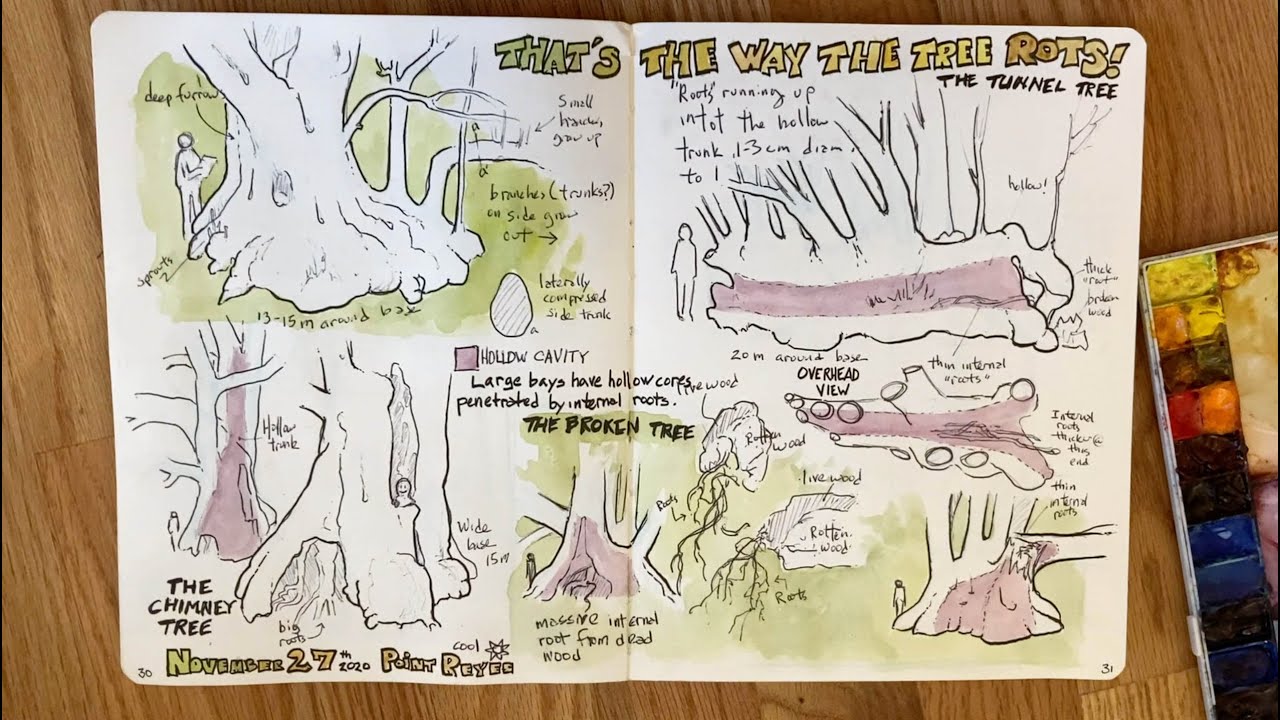 THAT'S THE WAY THE TREE ROTS!
THE TUNNEL TREE
deep furrow
Small
branches
grow up
a
a'
branches (trunks?)
on side grow
out →
sprouts
13-15m around base
laterally
compressed
side trunk
a
"Roots" running up
intot the hollow
trunk. 1-3 cm diam.
to 1
hollow!
thick
"root"
broken
wood
20 m around base
thin internal
"roots"
OVERHEAD
VIEW
Internal
roots
thicker @
this
end
HOLLOW CAVITY
Large bays have hollow cores
penetrated by internal roots.
THE BROKEN TREE
live wood
Rotten
wood
live wood
Rotten
wood
Roots
Roots
thin
internal
roots
massive internal
root from dead
wood
Hollow
trunk
Wide
base
15m
THE
CHIMNEY
TREE
big
roots
cool
NOVEMBER 27th 2020 POINT REYES
30
31